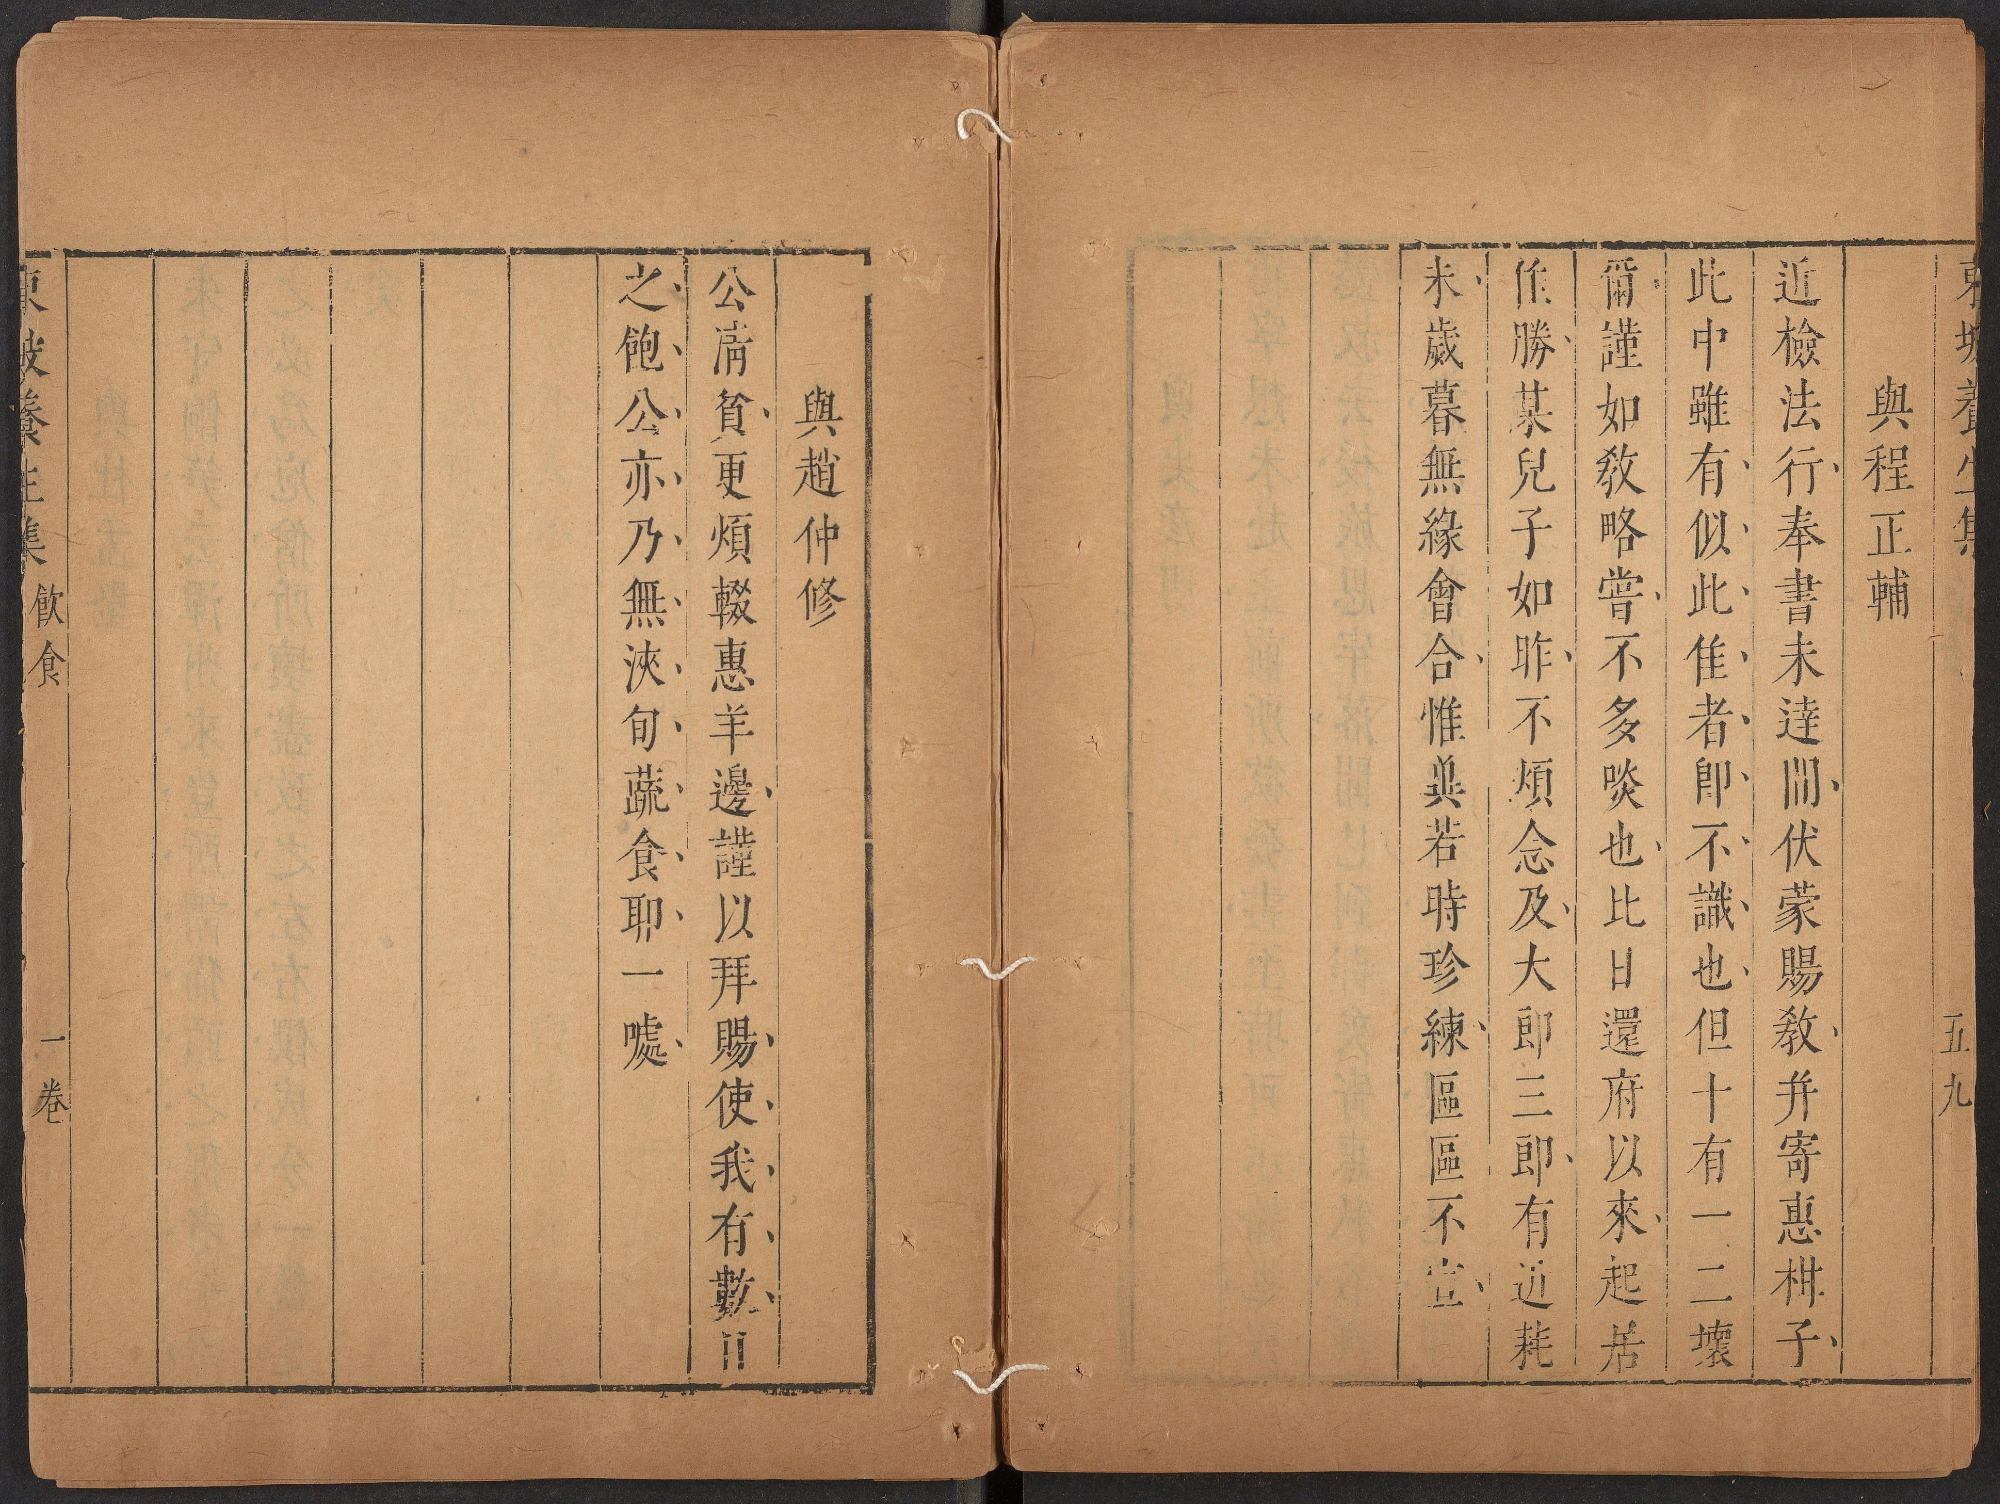 東坡養生集
五九
與程正輔
近檢法行奉書未達間伏蒙賜教并寄惠柑子
此中雖有似此佳者即不識也但十有一二壞
爾謹如教略嘗不多啖也比日還府以來起居
佳勝某兒子如昨不煩念及大郎三郎有近耗
未歲暮無緣會合惟冀若時珍練區區不宣
與趙仲修
公清貧更煩輟惠羊邊謹以拜賜使我有數日
之飽公亦乃無浹旬蔬食耶一噱
東坡養生集
飲食
一卷